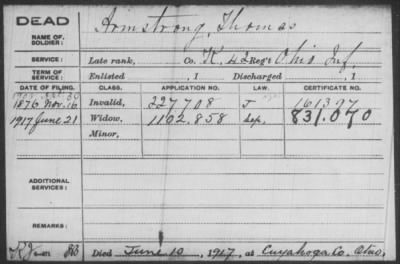 DEAD
NAME OF SOLDIER: Armstrong, Thomas
SERVICE: Late rank, Co. K, 42 Reg't Ohio Inf.
TERM OF SERVICE: Enlisted , 1 Discharged , 1
DATE OF FILING. CLASS. APPLICATION NO. LAW. CERTIFICATE NO.
1876 Nov. 16 Invalid, 227708 J 161397
1917 June 21 Widow, 1102.858 Sep. 831.070
Minor,
ADDITIONAL SERVICES:
REMARKS:
Died June 10, 1917, at Cuyahoga Co. Ohio,